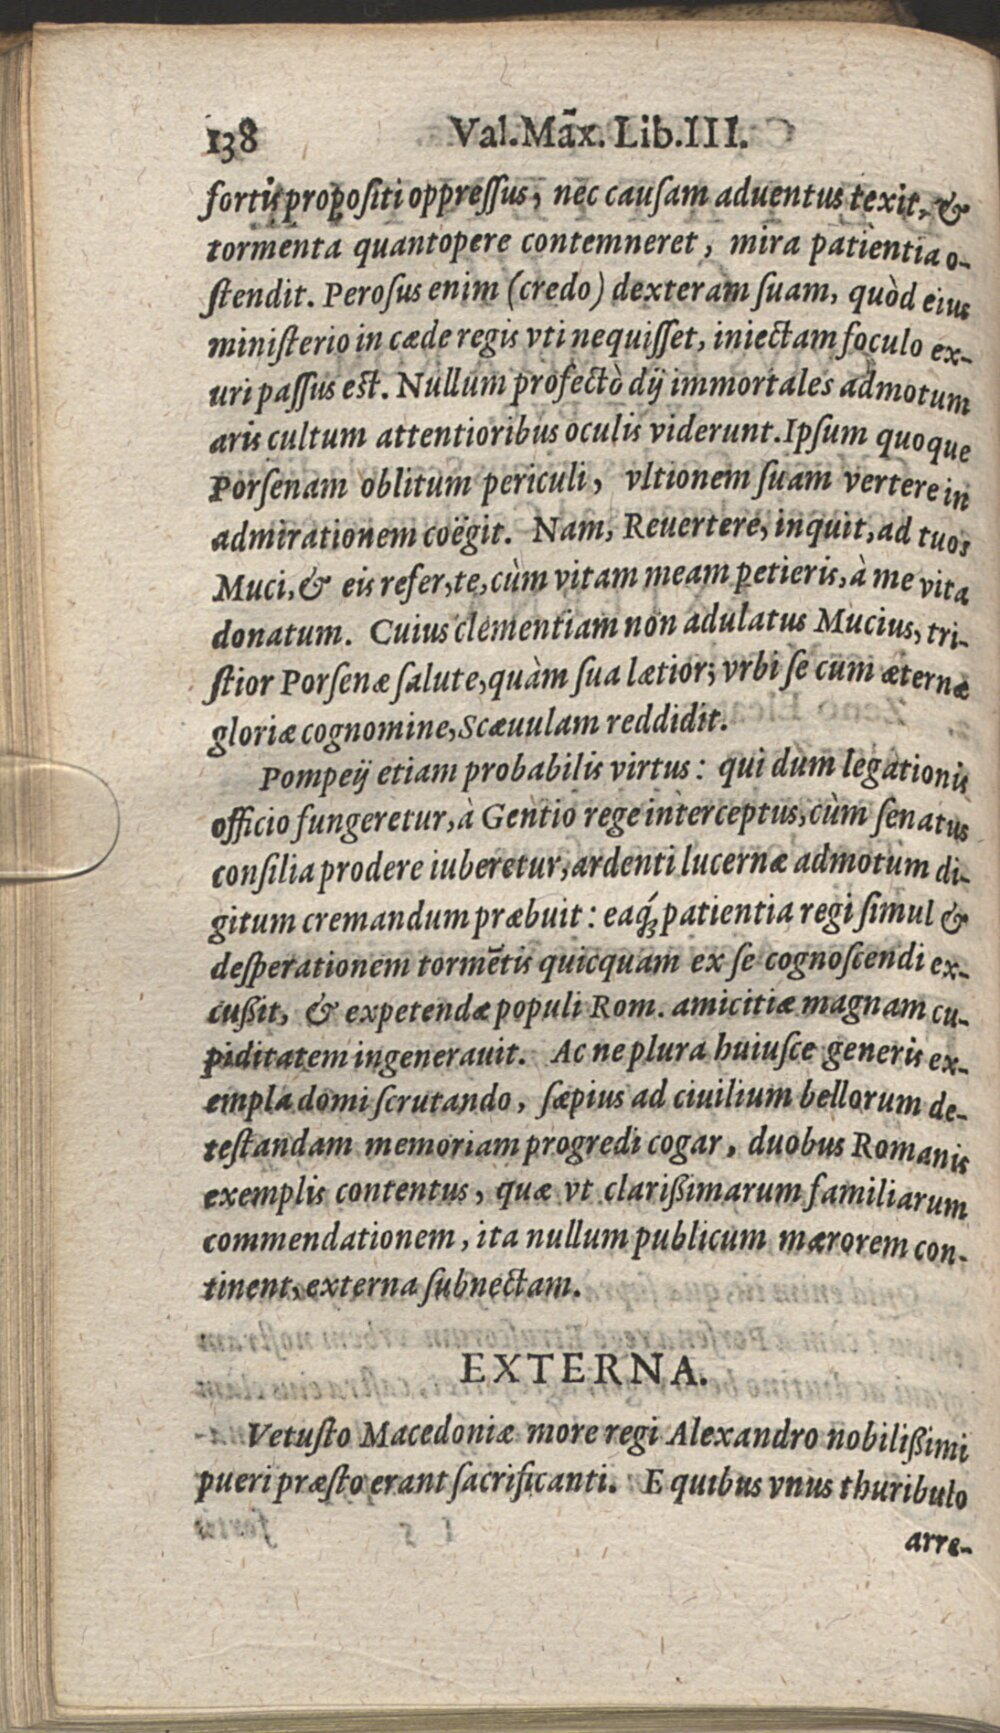 138 Val. Mãx. Lib. III.
fortis propositi oppreſſus, nec cauſam aduentus texit, &
tormenta quantopere contemneret, mira patientia o-
ſtendit. Peroſus enim (credo) dexteram ſuam, quòd eius
miniſterio in cæde regis vti nequiſſet, iniectam foculo ex-
uri paſſus eſt. Nullum profectò dij immortales admotum
aris cultum attentioribus oculis viderunt. Ipſum quoque
Porſenam oblitum periculi, vltionem ſuam vertere in
admirationem coëgit. Nam, Reuertere, inquit, ad tuos
Muci, & eis refer, te, cùm vitam meam petieris, à me vita
donatum. Cuius clementiam non adulatus Mucius, tri-
ſtior Porſenæ ſalute, quàm ſua lætior; vrbi ſe cum æternæ
gloriæ cognomine, Scæuulam reddidit.
Pompeij etiam probabilis virtus: qui dum legationis
officio fungeretur, à Gentio rege interceptus, cùm ſenatus
conſilia prodere iuberetur, ardenti lucernæ admotum di-
gitum cremandum præbuit: eaq́ꝫ patientia regi ſimul &
deſperationem tormẽtis quicquam ex ſe cognoſcendi ex-
cußit, & expetendæ populi Rom. amicitiæ magnam cu-
piditatem ingenerauit. Ac ne plura huiuſce generis ex-
empla domi ſcrutando, ſæpius ad ciuilium bellorum de-
teſtandam memoriam progredi cogar, duobus Romanis
exemplis contentus, quæ vt clarißimarum familiarum
commendationem, ita nullum publicum mærorem con-
tinent, externa ſubnectam.
EXTERNA.
Vetuſto Macedoniæ more regi Alexandro nobilißimi
pueri præſto erant ſacrificanti. E quibus vnus thuribulo
arre-